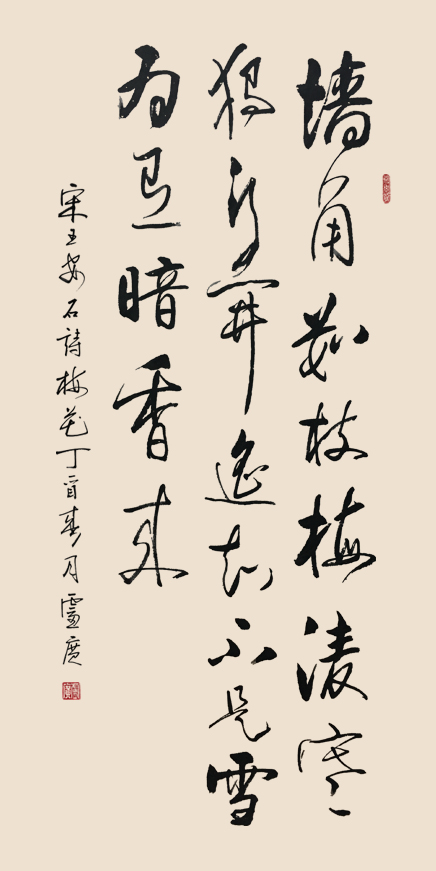 墙角数枝梅凌寒
独自開遥知不是雪
为有暗香来
宋王安石詩梅花丁酉春月靈廣